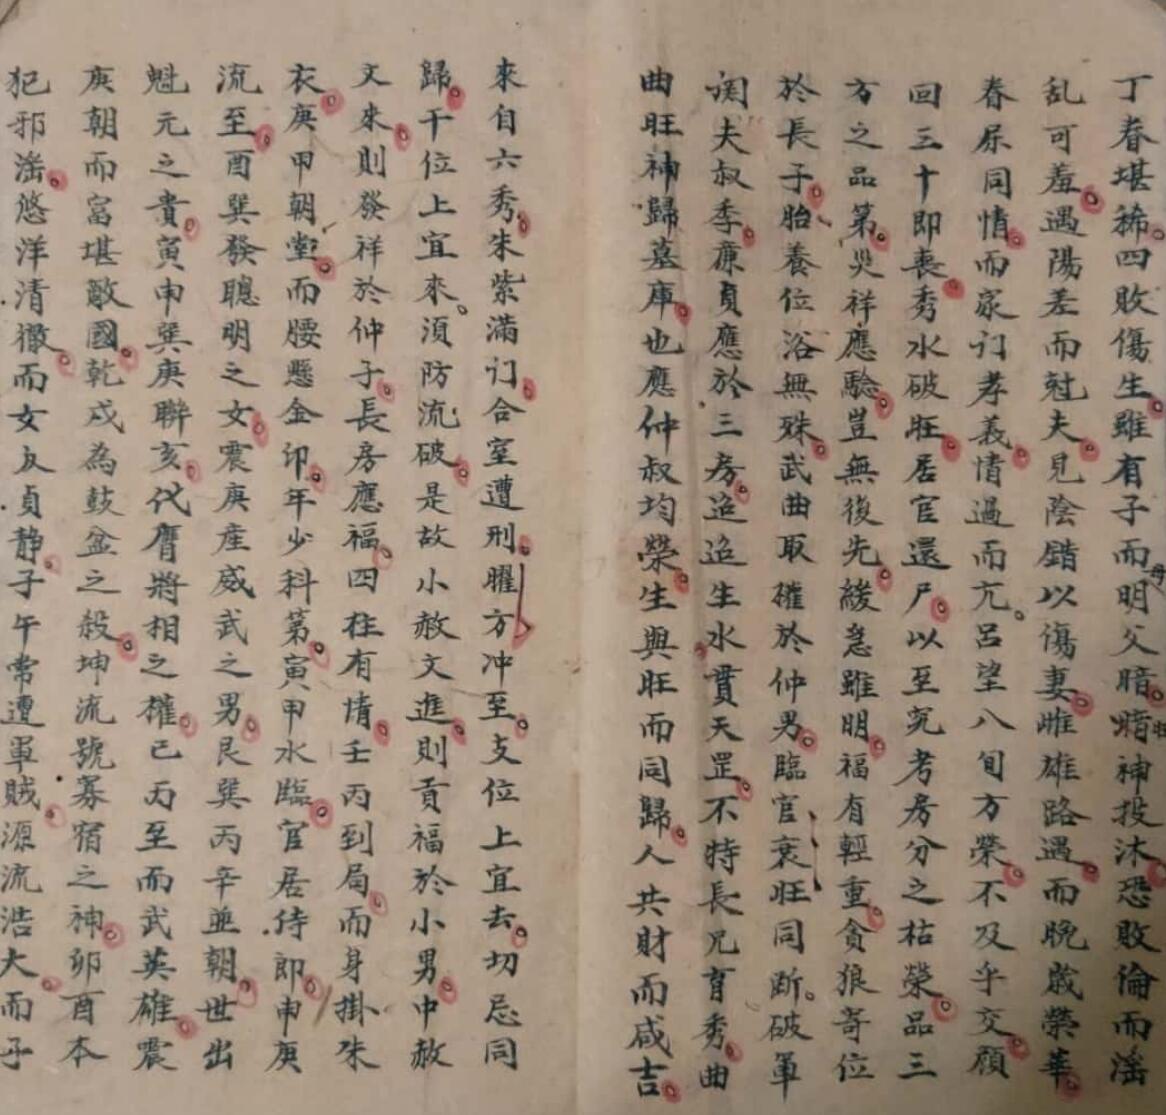 丁眷堪稀四敗傷生雖有子而明父暗暗神投沐恐敗倫而滛
乱可羞遇陽差而尅夫見陰錯以傷妻雌雄路遇而晚歲榮華
眷屎同情而家门孝義情過而亢吕望八旬方榮不及乎交顏
回三十即喪秀水破旺居官還尸以至究考房分之枯榮品三
方之品第灾祥應驗豈無後先緩急雖明福有輕重貪狼寄位
於長子胎養位浴無殊武曲取權於仲男臨官衰旺同断破軍
闵夫叔季廉貞應於三房迢迢生水貫天罡不特長兄育秀曲
曲旺神歸墓庫也應仲叔均榮生與旺而同歸人共財而咸吉
來自六秀朱紫滿门合室遭刑曜方冲至支位上宜去切忌同
歸干位上宜來須防流破是故小赦文進則貢福於小男中赦
文來則發祥於仲子長房應福四柱有情壬丙到局而身掛朱
衣庚甲朝堂而腰懸金印年少科第寅甲水臨官居侍郎申庚
流至酉巽發聰明之女震庚産威武之男艮巽丙辛並朝世出
魁元之貴寅申巽庚聯亥代膺將相之權巳丙至而武英雄震
庚朝而富堪敵國乾戌為鼓盆之殺坤流號寡宿之神卯酉本
犯邪滛悠洋清徹而女反貞静子午常遭軍賊源流浩大而子